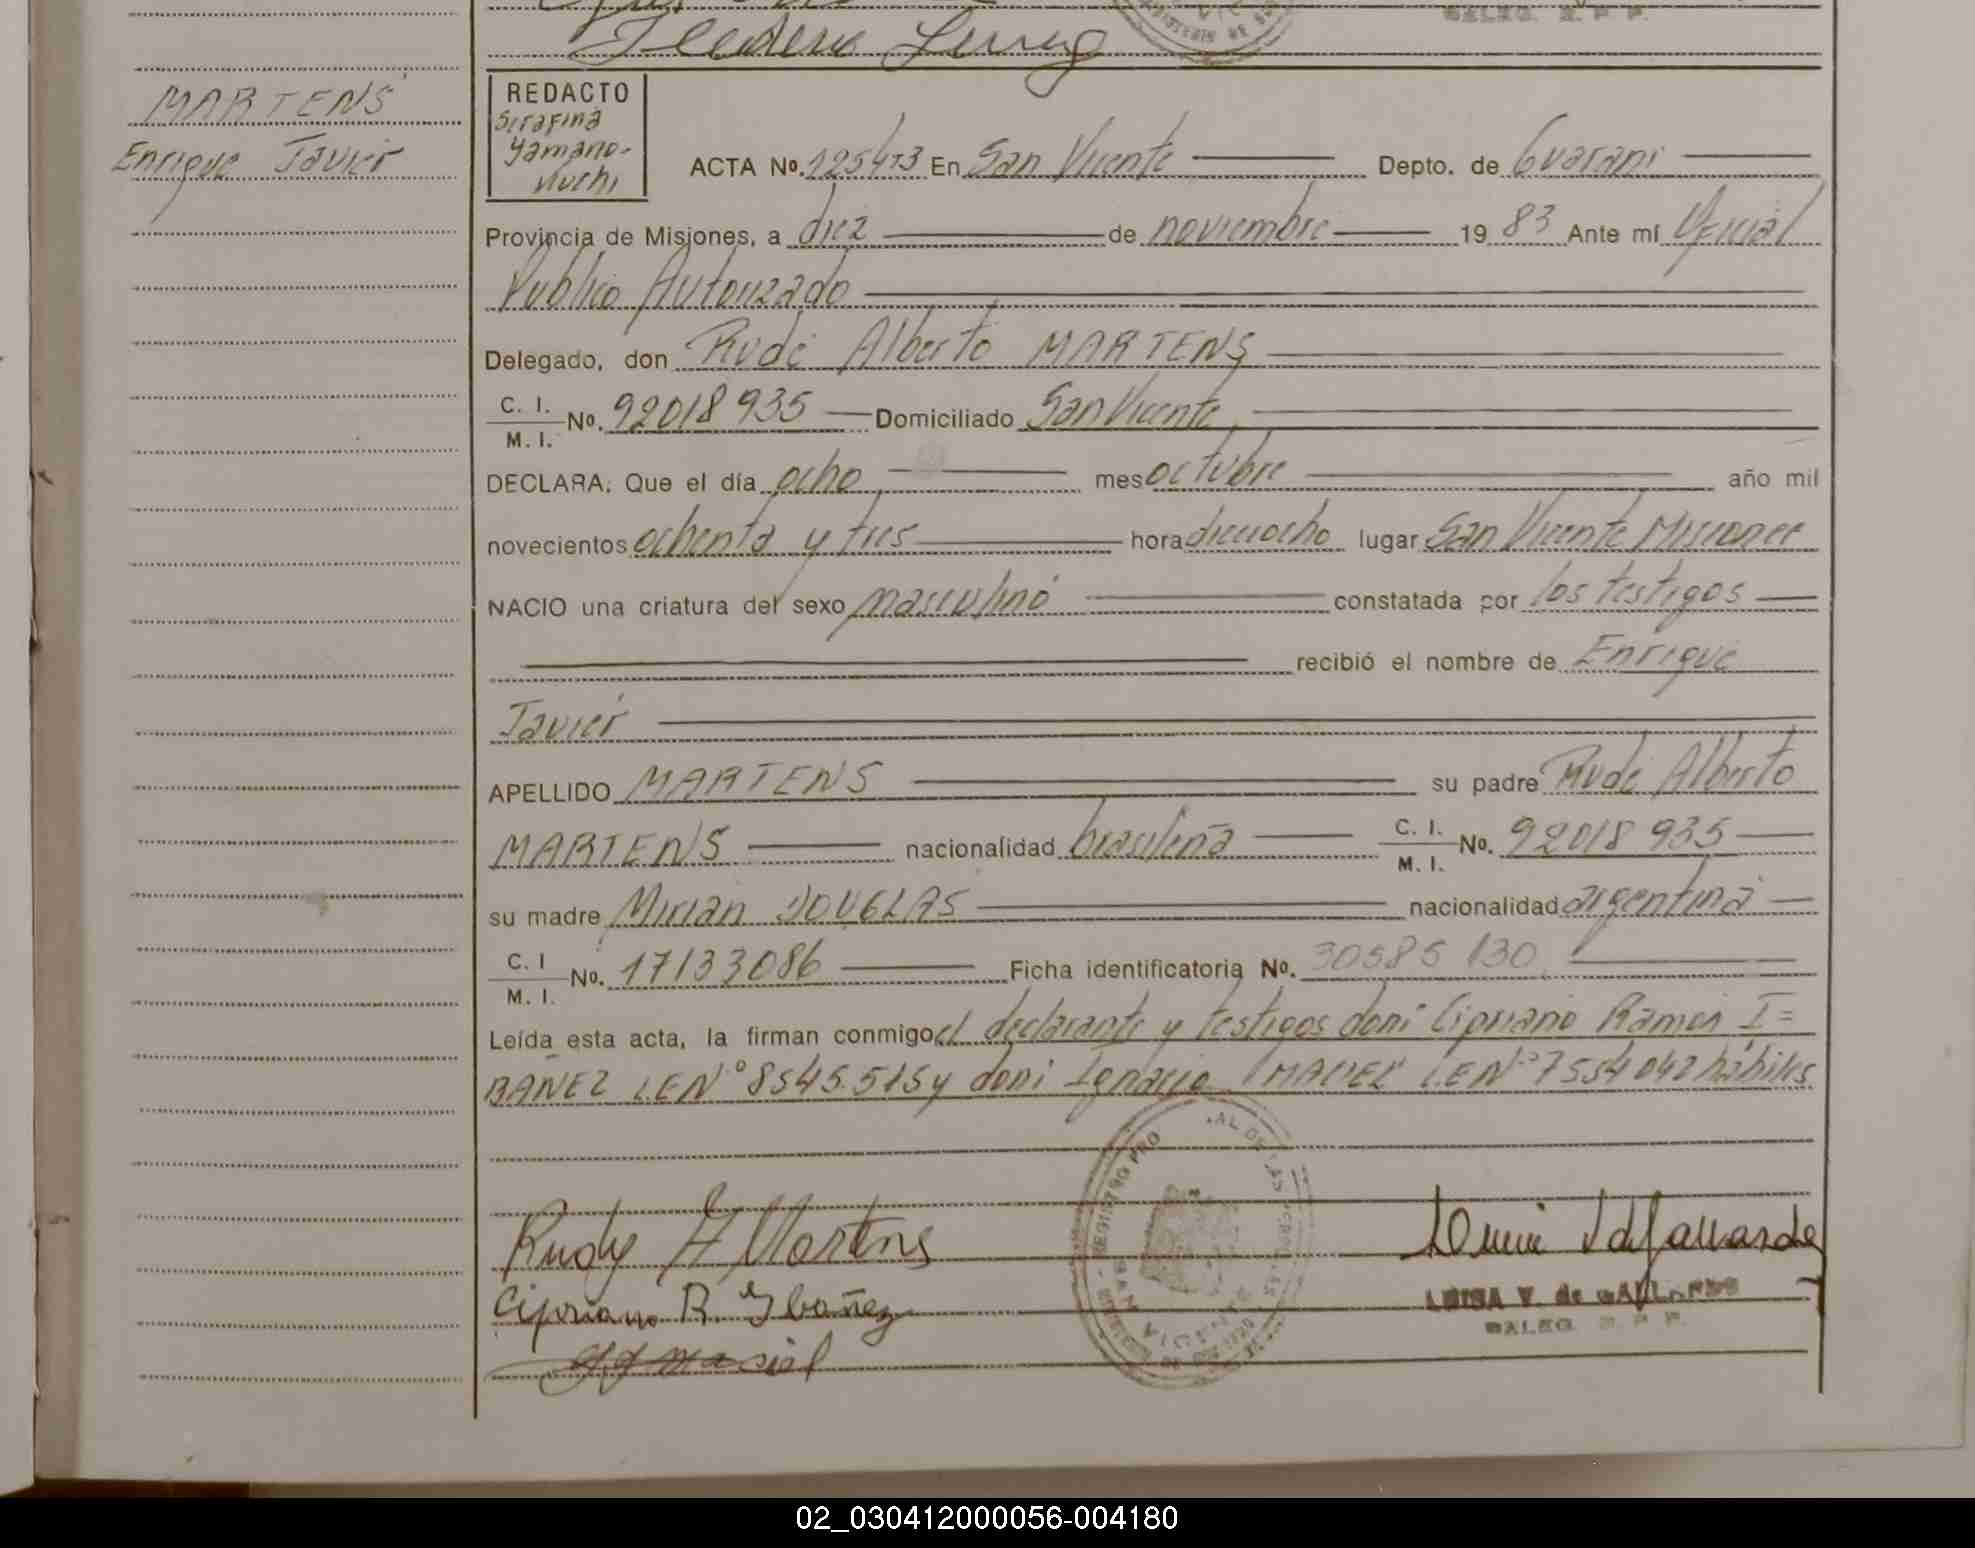 MARTENS
Enrique Javier
REDACTO
Serafina
Yamano-
ACTA Nº. 1254T3 En San Vicente Depto. de Guarani
Provincia de Misiones, a diez de noviembre 19 83 Ante mí Oficial
Publico Autorizado
Delegado, don Rudi Alberto MARTENS
C. I.
M. I. Nº. 92018935 Domiciliado San Vicente
DECLARA: Que el día ocho mes octubre año mil
novecientos ochenta y tres hora dieciocho lugar San Vicente Misiones
NACIO una criatura del sexo masculino constatada por los testigos
recibió el nombre de Enrique
Javier
APELLIDO MARTENS su padre Rudi Alberto
MARTENS nacionalidad brasileña C. I.
M. I. Nº. 92018935
su madre Mirian DOUGLAS nacionalidad argentina
C. I
M. I. Nº. 17133086 Ficha identificatoria Nº. 30585130
Leída esta acta, la firman conmigo el declarante y testigos don: Cipriano Ramón I=
BAÑEZ L.E Nº 8545.515 y don: Ignacio MACIEL L.E Nº 7554042 hábiles
Rudy A Martens
Cipriano R. Ybañez
LUISA V. de GALLARDO
DALEG. R. P. P.
02_030412000056-004180